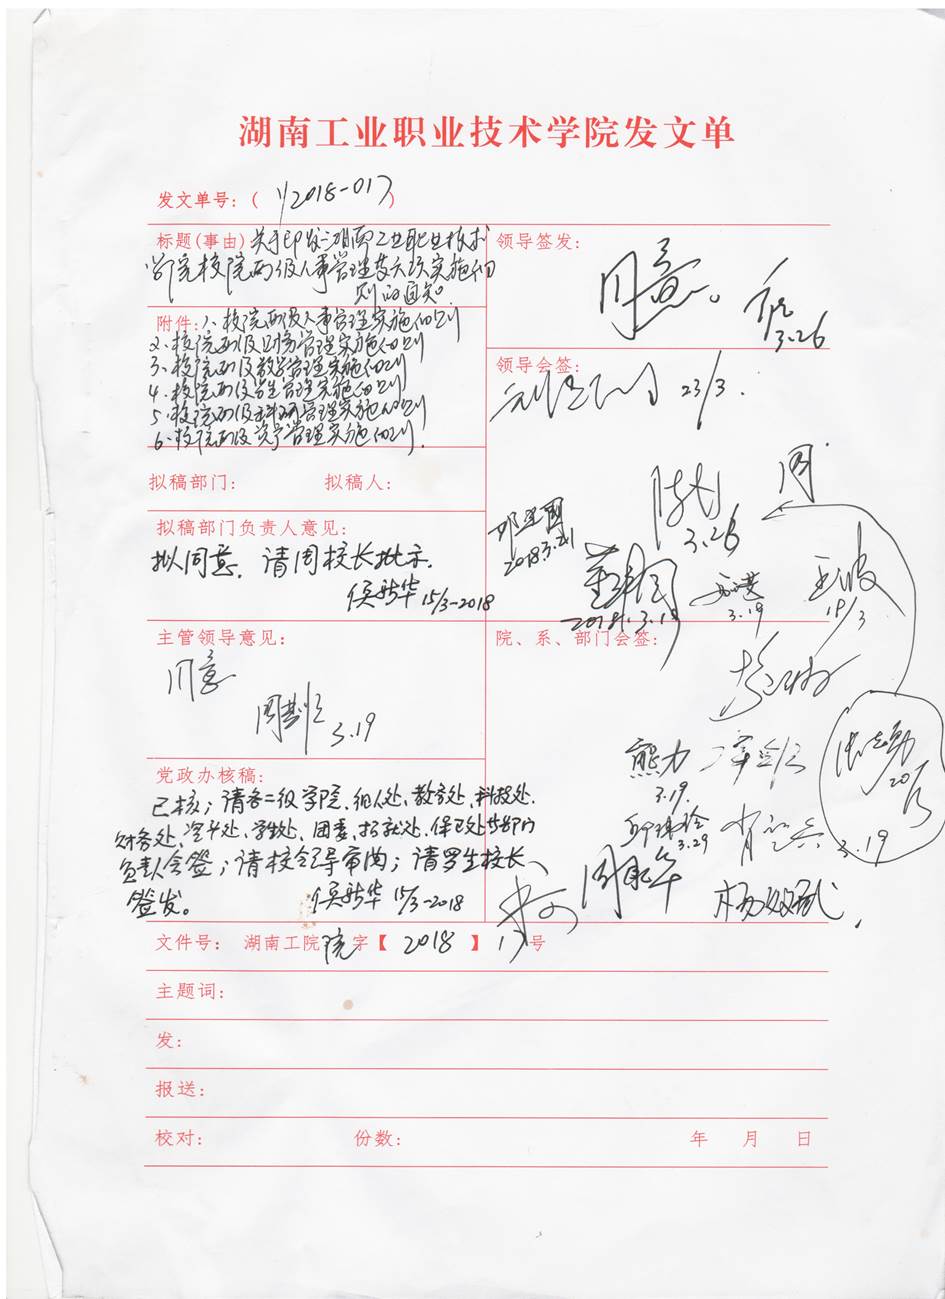 湖南工业职业技术学院发文单
发文单号：( y2018-017 )
标题(事由) 关于印发湖南工业职业技术
学院校院两级人事管理等六项实施细
则的通知。
附件: 1、校院两级人事管理实施细则
2、校院两级财务管理实施细则
3、校院两级教学管理实施细则
4、校院两级学生管理实施细则
5、校院两级科研管理实施细则
6、校院两级资产管理实施细则.
拟稿部门: 拟稿人:
拟稿部门负责人意见:
拟同意，请周校长批示.
侯新华 15/3-2018
主管领导意见:
同意
3.19
党政办核稿:
已核；请各二级学院、组人处、教务处、科技处、
财务处、资产处、学生处、团委、招就处、保卫处等部门
负责人会签；请校领导审阅；请罗生校长
签发。
侯新华 15/3-2018
领导签发:
同意。
3.26
领导会签:
23/3.
3.26
2018.3.21
2018.3.19
3.19
王波
19/3
院、系、部门会签:
熊力
3.19.
3.29
3.19
文件号: 湖南工院院字【 2018 】 17号
主题词:
发:
报送:
校对: 份数: 年 月 日